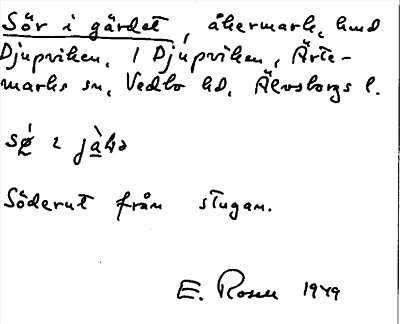 Sör i gärdet, åkermark, hmd
Djupviken, 1 Djupviken, Ärte-
marks sn, Vedbo hd, Älvsborgs l.
Söderut från stugan.
E. Rosen 1949